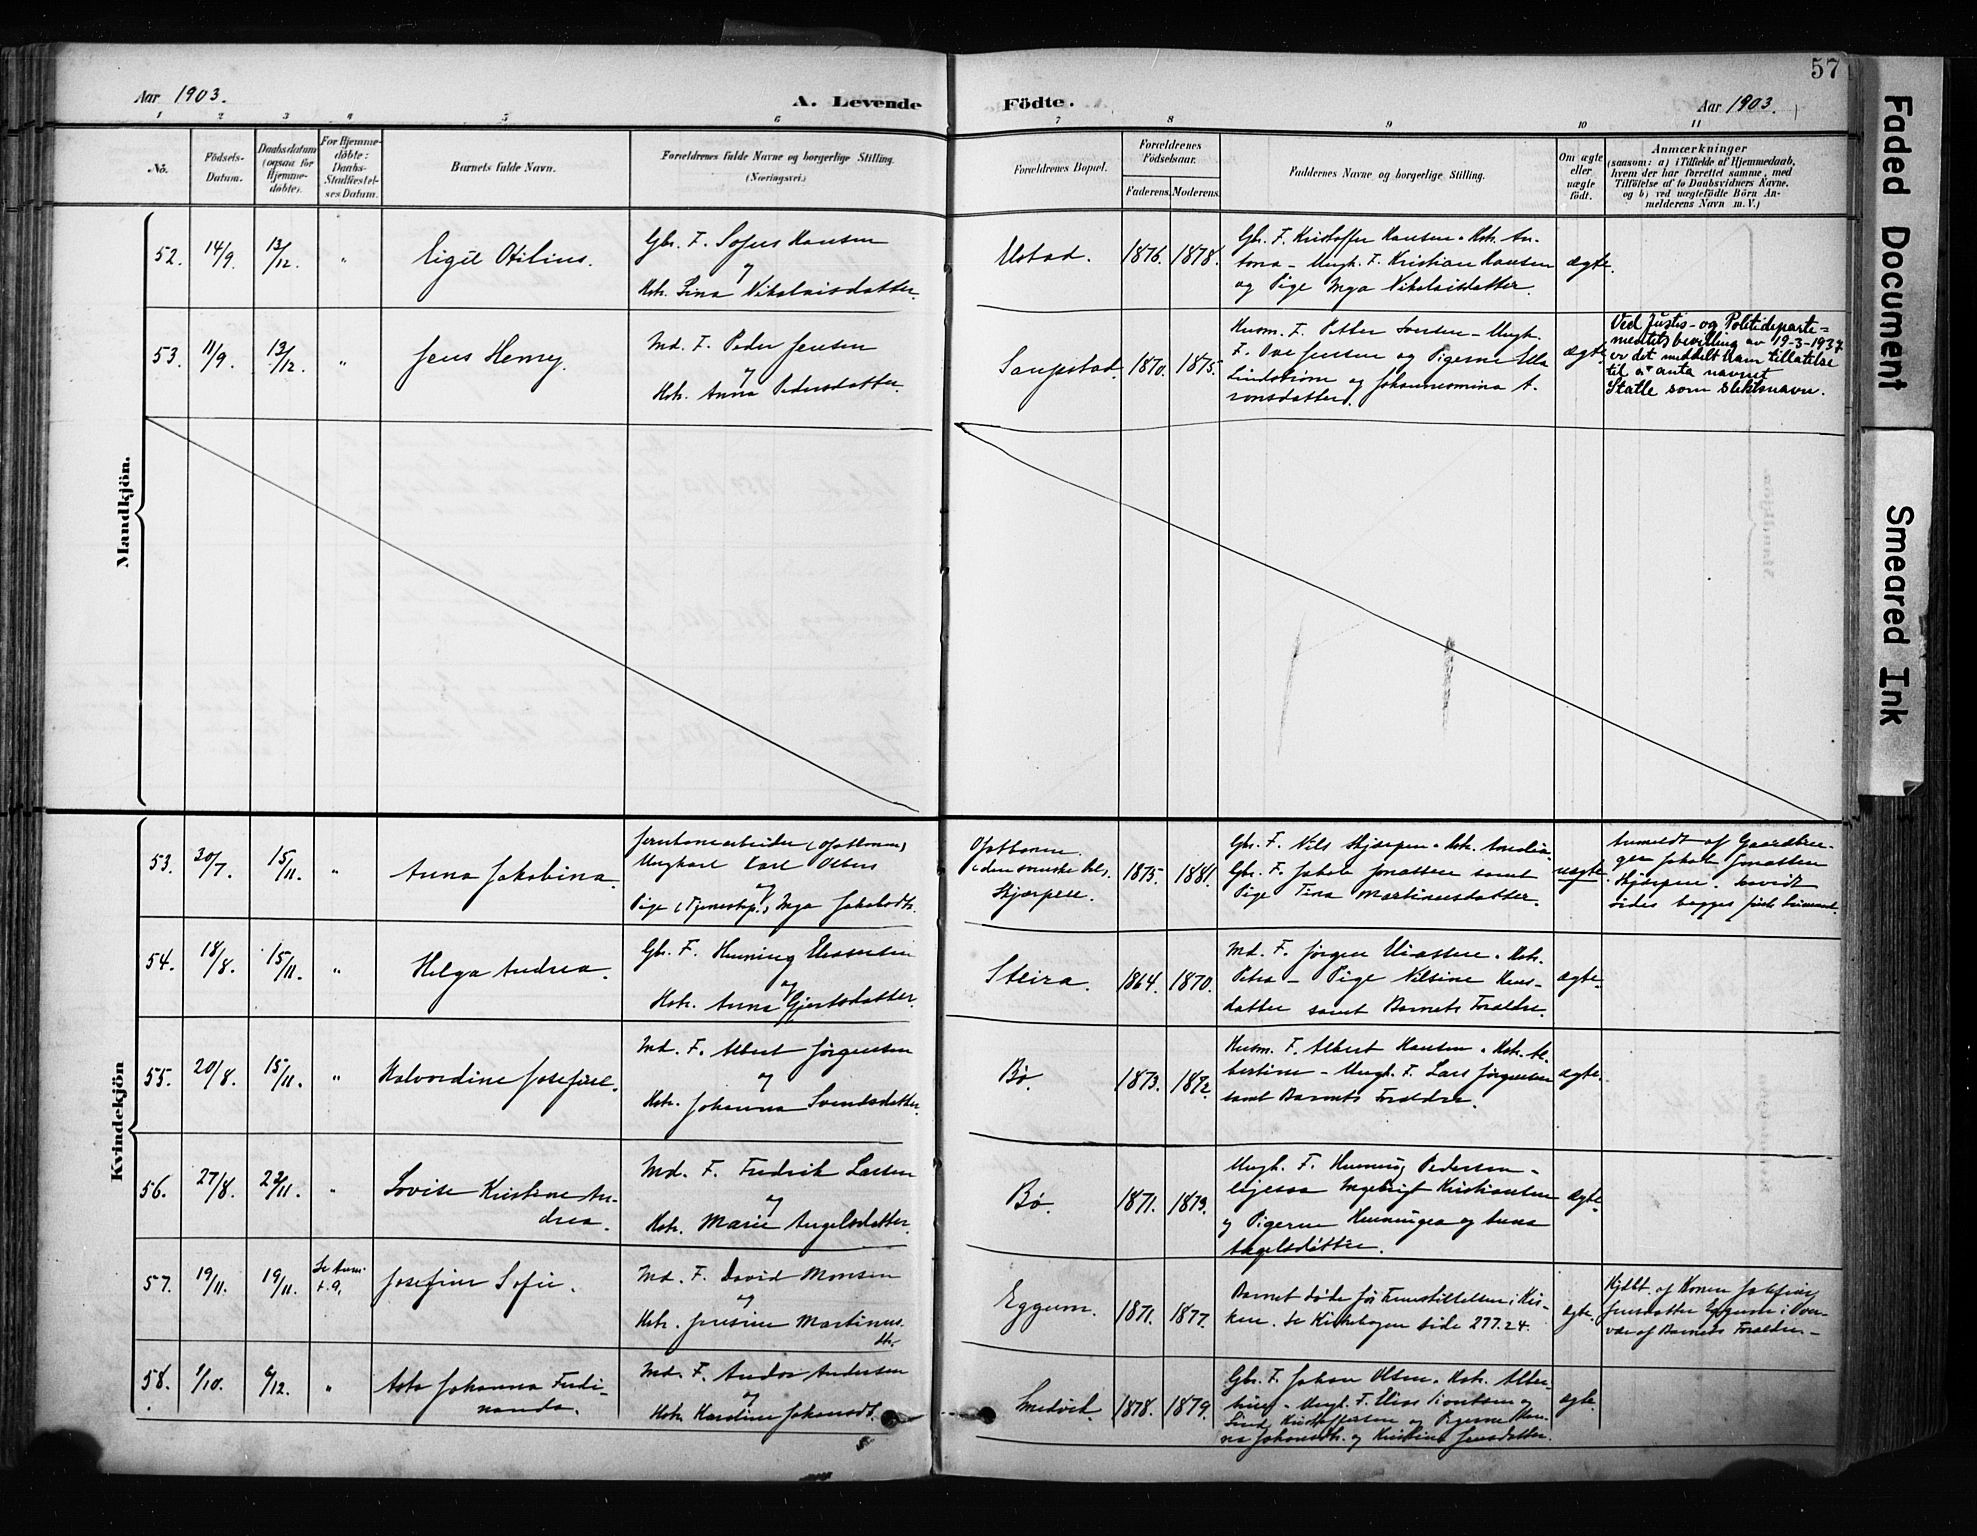 57
Aar 1903.
A. Levende
Födte.
Aar 1903.
1 2 3 4 5 6 7 8 9 10 11
No.
Födsels-
Datum.
Daabsdatum
(ogsaa for
Hjemme-
döbte).
For Hjemme-
döbte:
Daabs-
Stadfæstel-
ses Datum.
Barnets fulde Navn.
Forældrenes fulde Navne og borgerlige Stilling.
(Næringsvei.)
Forældrenes Bopæl.
Forældrenes
Födselsaar.
Faderens. Moderens.
Faddernes Navne og borgerlige Stilling.
Om ægte
eller
uægte
födt.
Anmærkninger
(saasom: a) i Tilfælde af Hjemmedaab,
hvem der har forrettet samme, med
Tilföielse af to Daabsvidners Navne.
og b) ved uægtefödte Börn An-
melderens Navn m. V.)
Mandkjön.
52. 14/9. 13/12. "
Eigil Otilius.
Gbr. F. Sofus Hansen
og
Hstr. Lina Nikolaisdatter.
Ulstad.
1876. 1878.
Gbr. F. Kristoffer Hansen. Hstr. An-
tona - Ungk. F. Kristian Hansen
og Pige Inga Nikolaisdatter.
ægte.
53. 11/9. 13/12. "
Jens Henry.
Md. F. Peder Jensen
og
Hstr. Anna Pedersdatter.
Saupstad.
1870. 1875.
Husm. F. Petter Iversen - Ungk.
F. Ove Jensen og Pigerne Ella
Lindstrøm og Johannesmina A-
ronsdatter.
ægte.
Ved Justis- og Politideparte-
mentets bevilling av 19-3-1937
er det meddelt ham tillatelse
til å anta navnet
Statle som slektsnavn.
Kvindekjön
53. 30/7. 15/11. "
Anna Jakobina.
Jernbanearbeider (Ofotbanen)
Ungkarl Karl Olsen
og
Pige (Tjenestep.) Inga Jakobsdtr.
Ofotbanen
Skjærpen.
1875. 1881.
Gbr. F. Nils Skjærpen. Hstr. Amalia.
Gbr. F. Jakob Jonassen samt
Pige Tina Martinusdatter.
uægte.
Anmeldt af Gaardbru-
ger Jakob Jonassen
Skjærpen.
54. 18/8. 15/11. "
Helga Andrea.
Gbr. F. Henning
og
Hstr. Anna Gjertsdatter.
Steira.
1864. 1870.
Md. F. Jørgen Eliassen. Hstr.
Petra - Pige Nilsine Hans-
datter samt Barnets Forældre.
ægte.
55. 20/8. 15/11. "
Halvordine Josefine.
Md. F. Albert Jørgensen
og
Hstr. Johanna Svendsdatter.
Bø.
1873. 1872.
Husm. F. Albert Hansen. Hstr. Al-
bertine - Ungk. F. Lars Jørgensen
samt Barnets Forældre.
ægte.
56. 27/8. 22/11. "
Lovise Kristine An-
drea.
Md. F. Fredrik Larsen
og
Hstr. Marie Angelsdatter.
Bø.
1871. 1879.
Ungk. F. Henning Pedersen -
ligesaa Ingebrigt Kristiansen
og Pigerne Henningea og Anna
Angelsdøttre.
ægte.
57. 19/11. 19/11. Se Anm.
t. 9.
Josefine Sofie.
Md. F. David Monsen
og
Hstr. Jensine Martinus-
dtr.
Eggum.
1871. 1877.
Barnet døde før Fremstillelsen i Kir-
ken. Se Kirkebogen side 277.24.
ægte.
Hjdbt. af Konen Josefine
Jensdatter Eggum i Over-
vær af Barnets Forældre.
58. 1/10. 6/12. "
Asta Johanna Ferdi-
nanda.
Md. F. Andor Andersen
og
Hstr. Karoline Johansdt.
Smedvik.
1878. 1879.
Gbr. F. Johan Olsen. Hstr. Alber-
Ungk. F. Elias og
Kristoffersen og Pigerne
Johansdtr. og Kristine Jensdatter.
ægte.
Faded Document
Smeared Ink